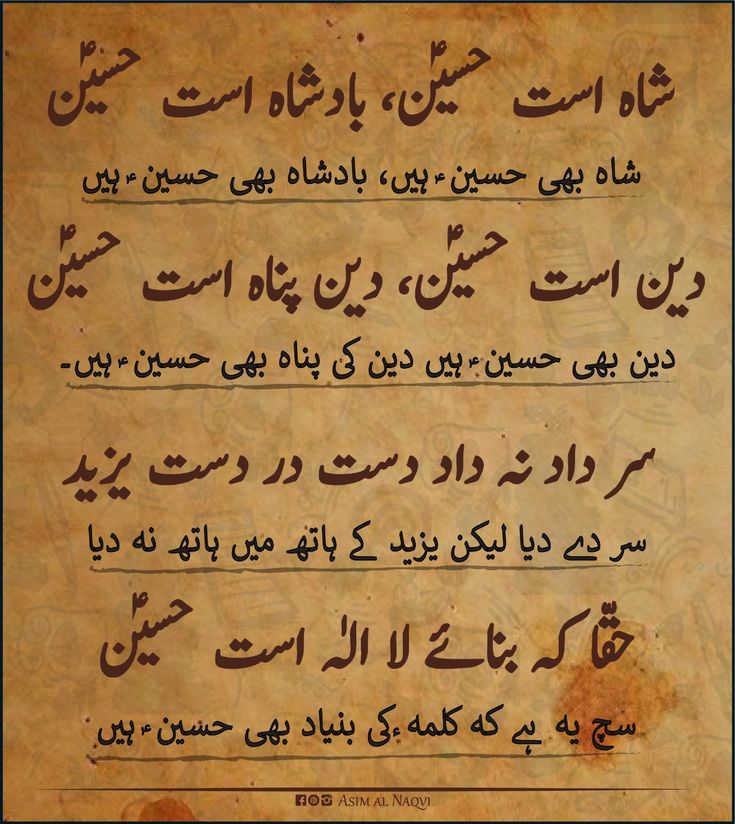 شاہ است حسینؑ، بادشاہ است حسینؑ
شاہ بھی حسین ؑ ہیں، بادشاہ بھی حسین ؑ ہیں
دین است حسینؑ، دین پناہ است حسینؑ
دین بھی حسین ؑ ہیں دین کی پناہ بھی حسین ؑ ہیں۔
سر داد نہ داد دست در دست یزید
سر دے دیا لیکن یزید کے ہاتھ میں ہاتھ نہ دیا
حقّا کہ بنائے لا الٰہ است حسینؑ
سچ یہ ہے کہ کلمہ ٔکی بنیاد بھی حسین ؑ ہیں
ASIM AL NAQVI